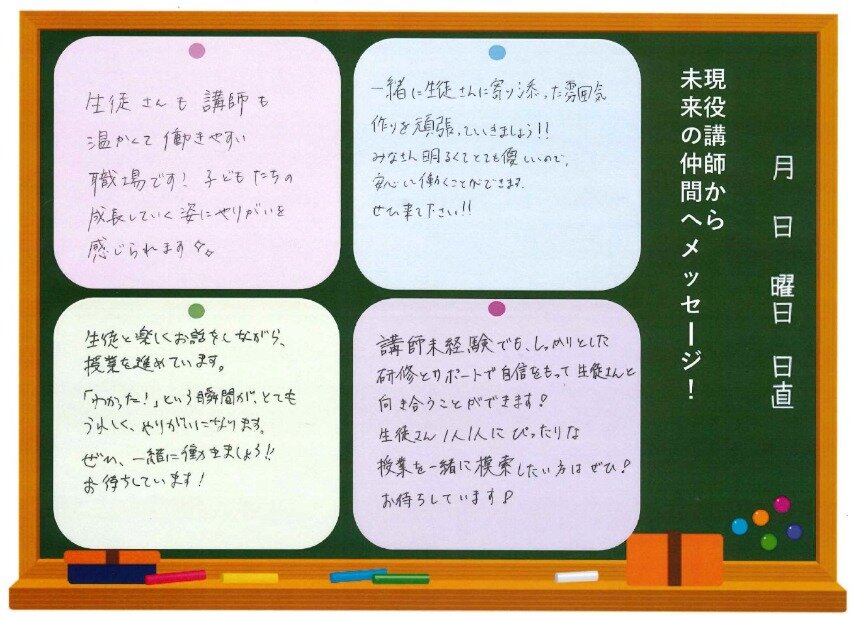 現役講師から
未来の仲間へメッセージ！
月 日 曜日 日直
生徒さんも講師も
温かくて働きやすい
職場です！子どもたちの
成長していく姿にやりがいを
感じられます
一緒に生徒さんに寄り添った雰囲気
作りを頑張っていきましょう!!
みなさん明るくてとても優しいので、
安心して働くことができます。
ぜひ来て下さい!!
生徒と楽しくお話をしながら、
授業を進めています。
「わかった！」という瞬間が、とても
うれしく、やりがいになります。
ぜひ、一緒に働きましょう!!
お待ちしています！
講師未経験でも、しっかりとした
研修とサポートで自信をもって生徒さんと
向き合うことができます！
生徒さん1人1人にぴったりな
授業を一緒に模索したい方はぜひ！
お待ちしています！